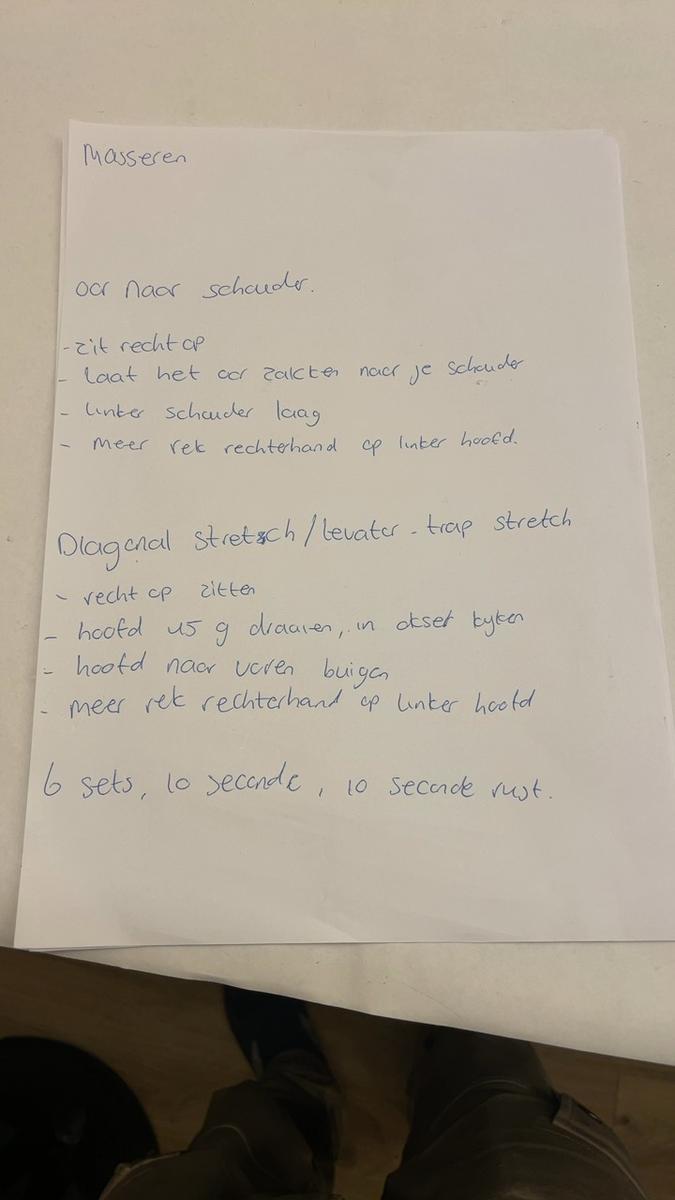 Masseren
oor naar schouder.
- zit recht op
- laat het oor zakken naar je schouder
- linker schouder laag
- meer rek rechterhand op linker hoofd.
Diagonal stretsch / levator - trap stretch
- recht op zitten
- hoofd 45 g draaien, in oksel kijken
- hoofd naar voren buigen
- meer rek rechterhand op linker hoofd
6 sets, 10 seconde, 10 seconde rust.